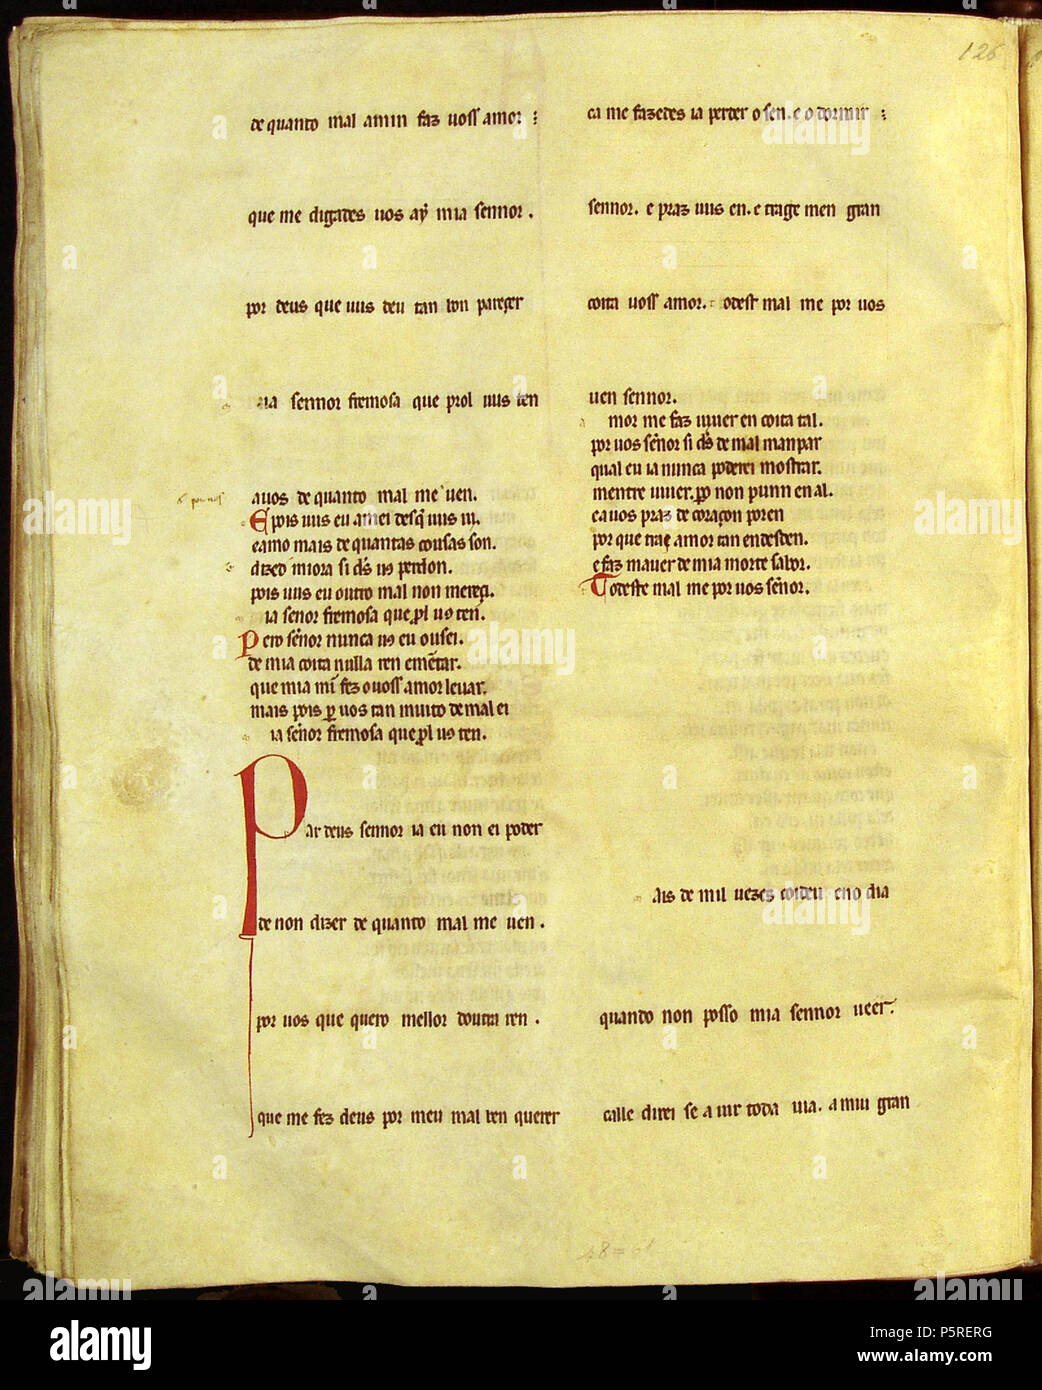 126
de quanto mal amin faz uoss amor :
que me digades uos aẏ mia sennor .
por deus que uus deu tan bon pareçer
ia sennor fremosa que prol uus ten
auos de quanto mal me uen.
E pois uus eu amei desq̄ uus ui.
eamo mais de quantas cousas son.
dized miora si ds̄ us perdon.
pois uus eu outro mal non mereçi.
ia senor fremosa que prol us ten.
Pero sēnor nunca us eu ousei.
de mia coita nulla ren emētar.
que mia mī fez o uoss amor leuar.
mais pois ꝑ uos tan muito de mal ei
ia sēnor fremosa que prol us ten.
Par deus sennor ia eu non ei poder
de non dizer de quanto mal me uen .
por uos que quero mellor doutra ren .
que me fez deus por meu mal ben querer
ca me fazedes ia perder o sen. e o dormir :
sennor. e praz uus en. e trage men gran
coita uoss amor. todest mal me por uos
uen sennor.
mor me faz uiuer en coita tal.
por uos sēnor si ds̄ de mal manpar
qual eu ia nunca poderei mostrar.
mentre uiuer. ꝑo non punn en al.
ea uos praz de coraçon por en
por que trag amor tan endesden.
e faz mauer de mia morte sabor.
Todeste mal me por uos sēnor.
ais de mil uezes coideu eno dia
quando non posso mia sennor ueer.
calle direi se a uir toda uia. a miu gran
alamy
Image ID: P5RERG
www.alamy.com